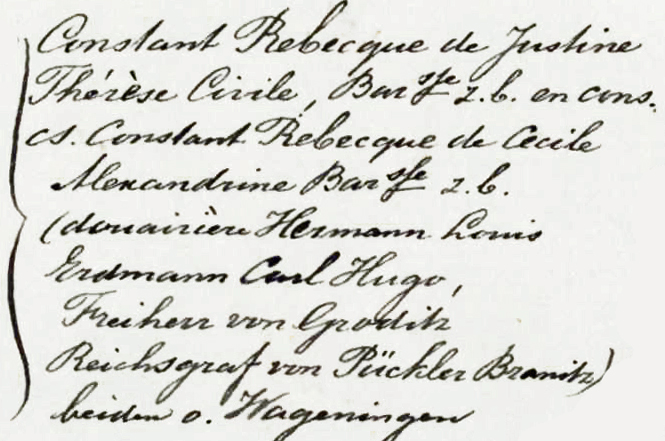 Constant Rebecque de Justine
Thérèse Cirile, Bar sse z.b. en cons.
cs. Constant Rebecque de Cecile
Alexandrine Bar sse z.b.
(douairière Hermann Louis
Erdmann Carl Hugo,
Freiherr von Groditz
Reichsgraf von Pückler Branitz)
beiden o. Wageningen